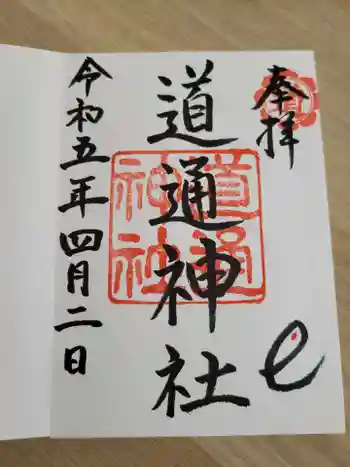 奉拝
道通神社
道通
神社
令和五年四月二日